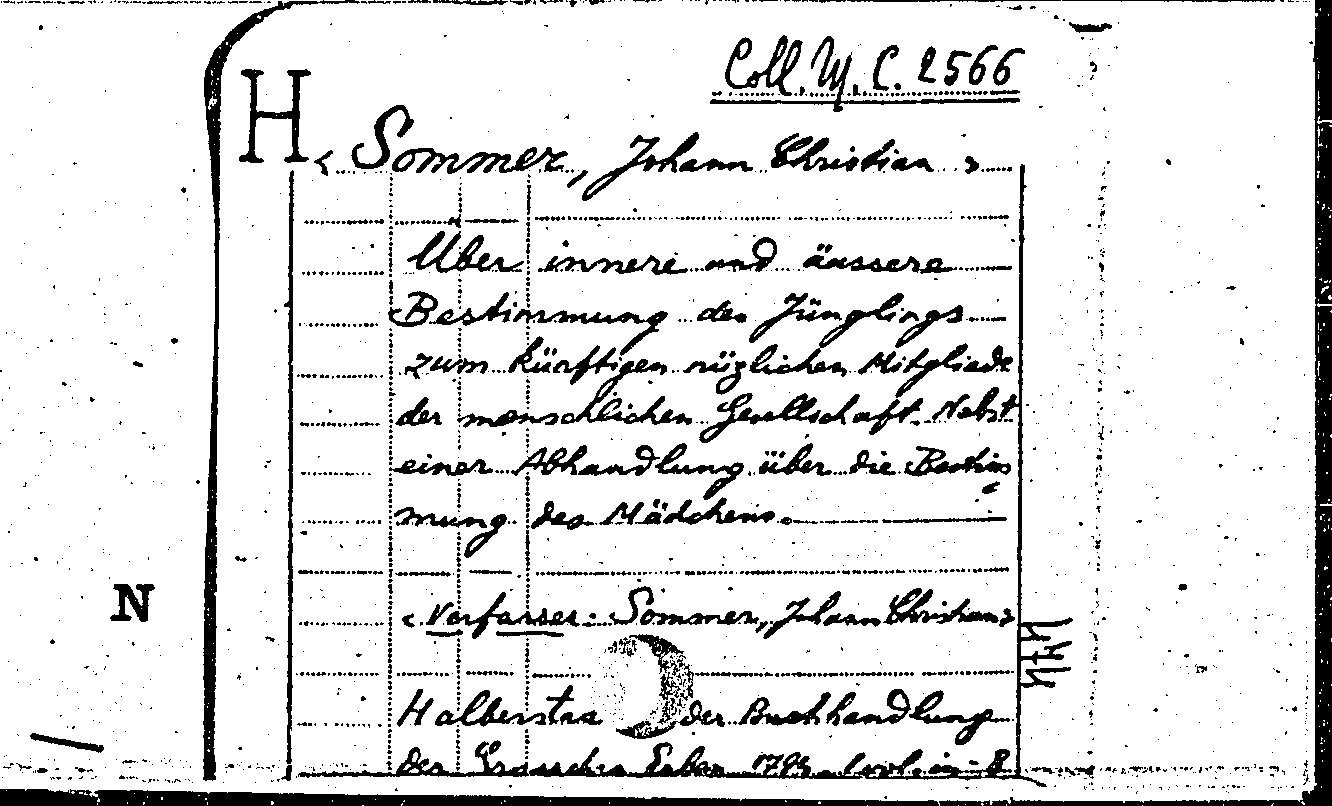 Coll. M. C. 2566
H
< Sommer, Johann Christian >
Über innere und äussere
Bestimmung des Jünglings
zum künftigen nüzlichen Mitgliede
der menschlichen Gesellschaft. Nebst
einer Abhandlung über die Bestim
mung des Mädchens.
N
< Verfasser: Sommer, Johann Christian >
Halbersta der Buchhandlung
der Grossschen Erben 1794. 1 vol. in-8